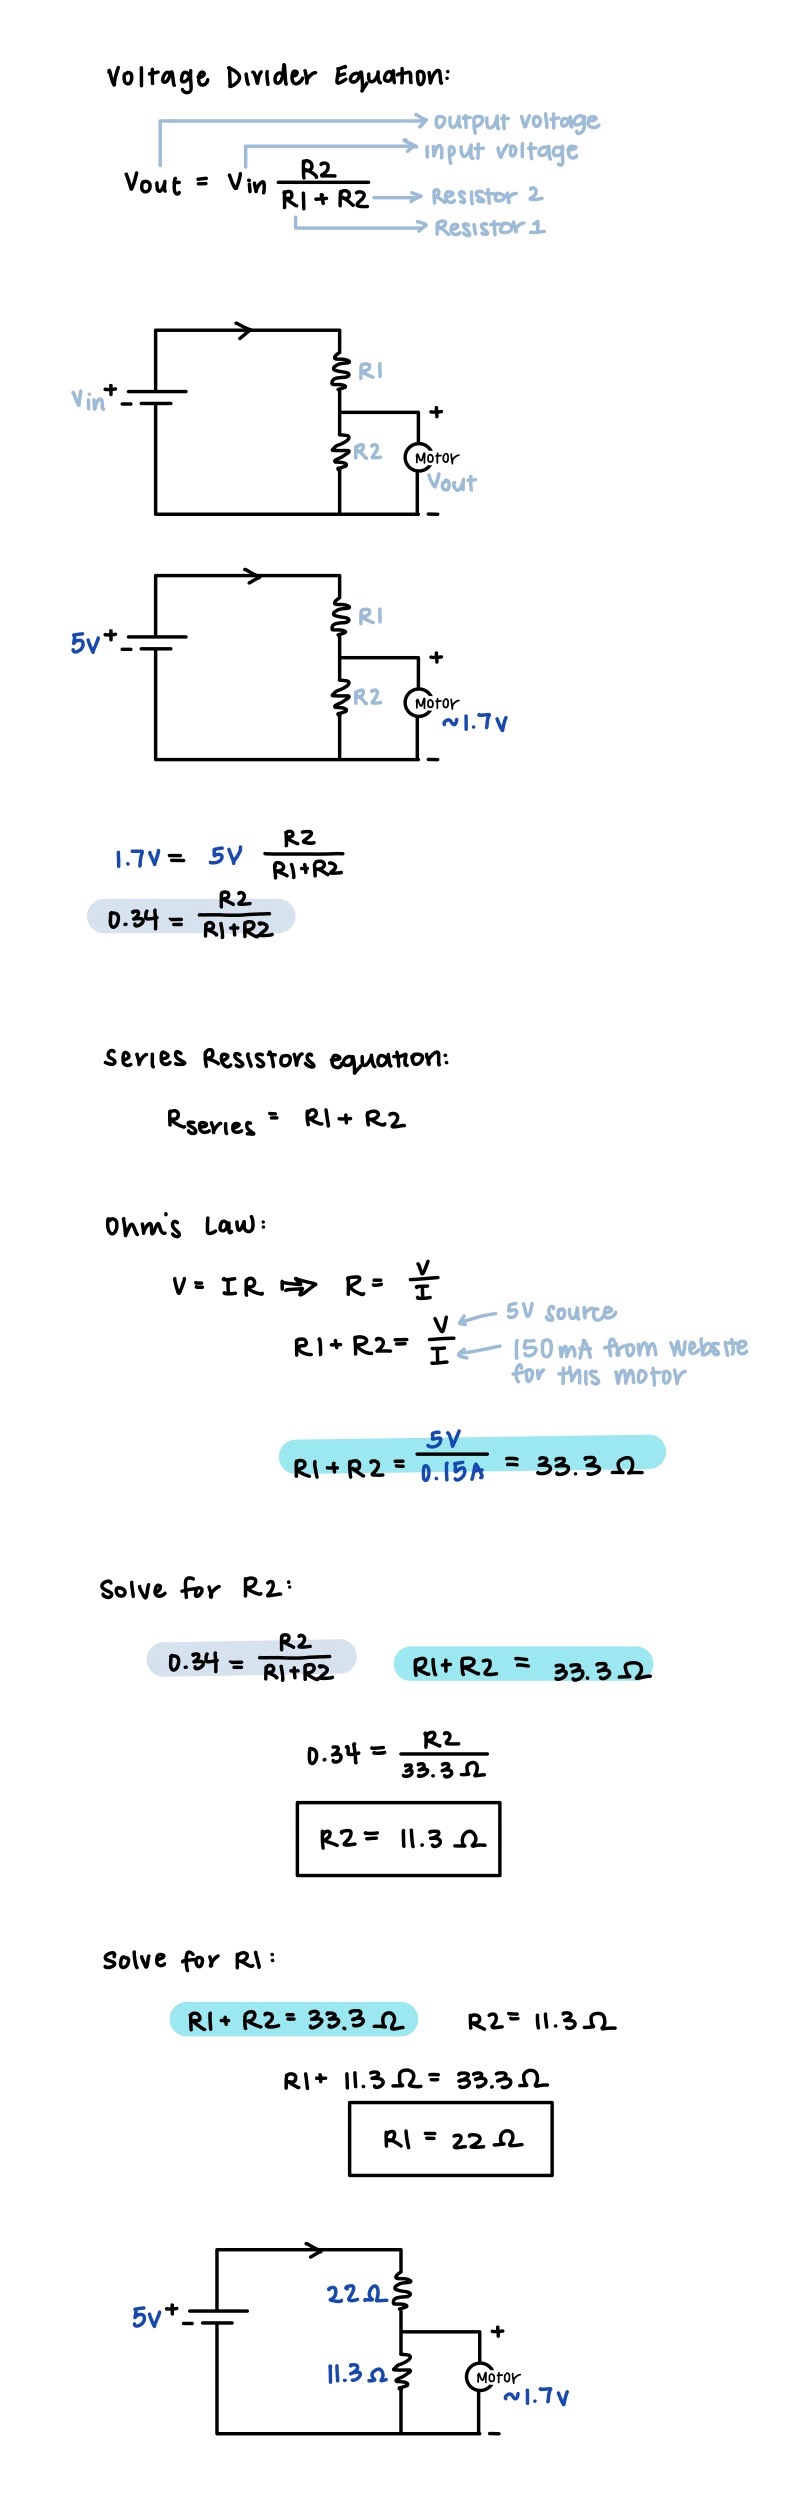 Voltage Divider Equation:
output voltage
input voltage
Vout = Vin R2
R1 + R2
Resistor 2
Resistor 1
R1
Vin + -
+
R2
Motor
Vout
-
R1
5V + -
+
R2
Motor
~1.7V
-
1.7V = 5V R2
R1+R2
0.34 = R2
R1+R2
Series Resistors equation:
Rseries = R1 + R2
Ohm's Law:
V = IR → R = V
I
5V source
R1 + R2 = V
I
150mA from website
for this motor
5V
R1 + R2 = 0.15A = 33.3 Ω
Solve for R2:
0.34 = R2
R1+R2
R1+R2 = 33.3 Ω
0.34 = R2
33.3 Ω
R2 = 11.3 Ω
Solve for R1:
R1 + R2 = 33.3 Ω
R2 = 11.3 Ω
R1 + 11.3 Ω = 33.3 Ω
R1 = 22 Ω
22Ω
5V + -
+
11.3Ω
Motor
~1.7V
-